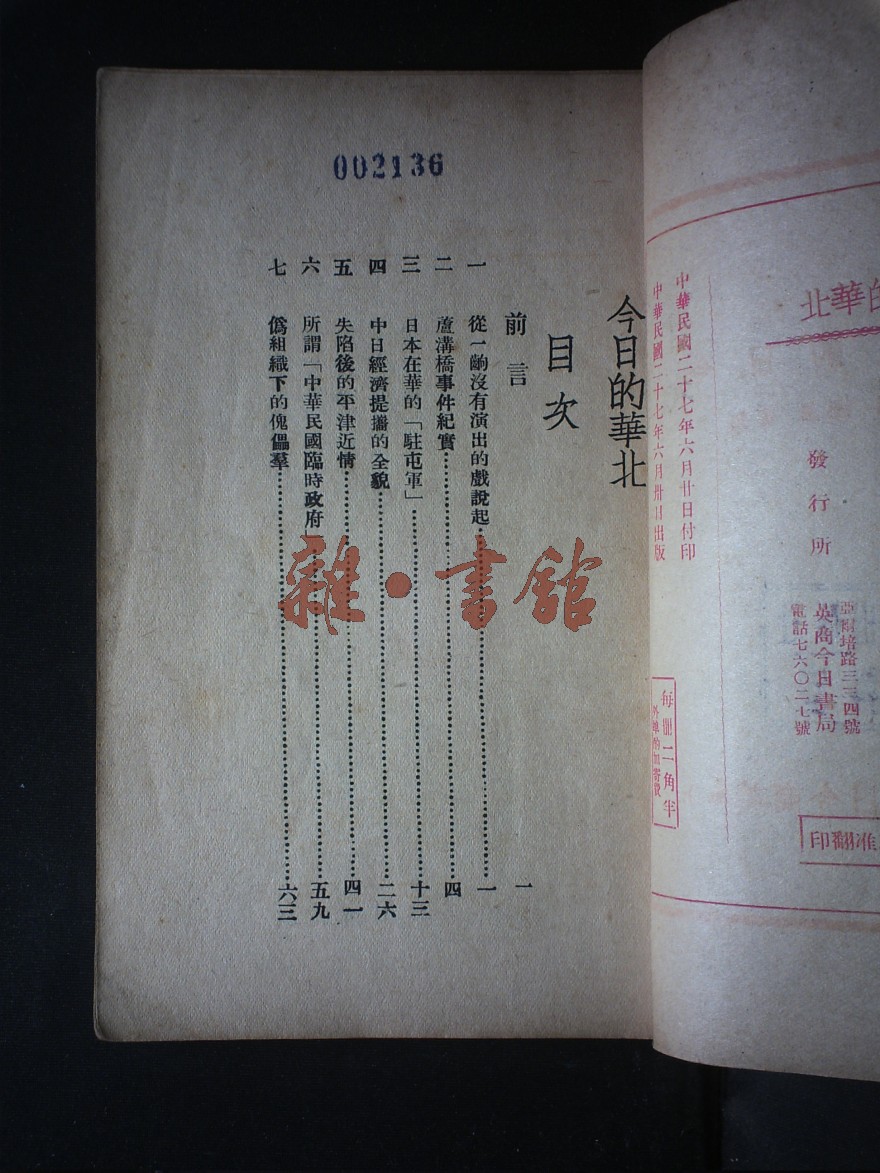 002136
的華北
發行所
亞爾培路三三四號
英商今日書局
電話七六〇二七號
准翻印
中華民國二十七年六月廿日付印
中華民國二十七年六月卅日出版
每册二角半
外埠酌加寄費
今日的華北
目次
前言 一
一 從一齣沒有演出的戲說起 一
二 蘆溝橋事件紀實 四
三 日本在華的「駐屯軍」 十三
四 中日經濟提攜的全貌 二六
五 失陷後的平津近情 四一
六 所謂「中華民國臨時政府」 五九
七 僞組織下的傀儡羣 六三
雜·書館